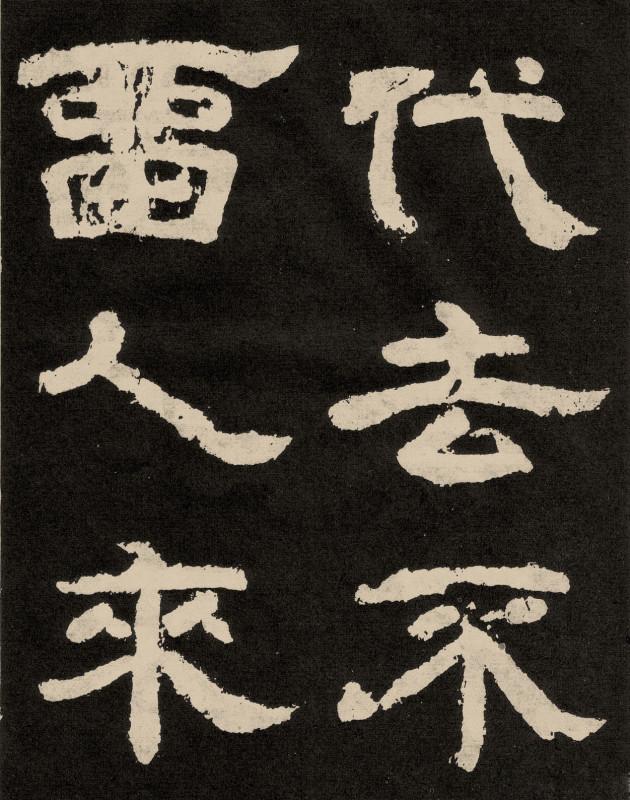 代去不
畱人來